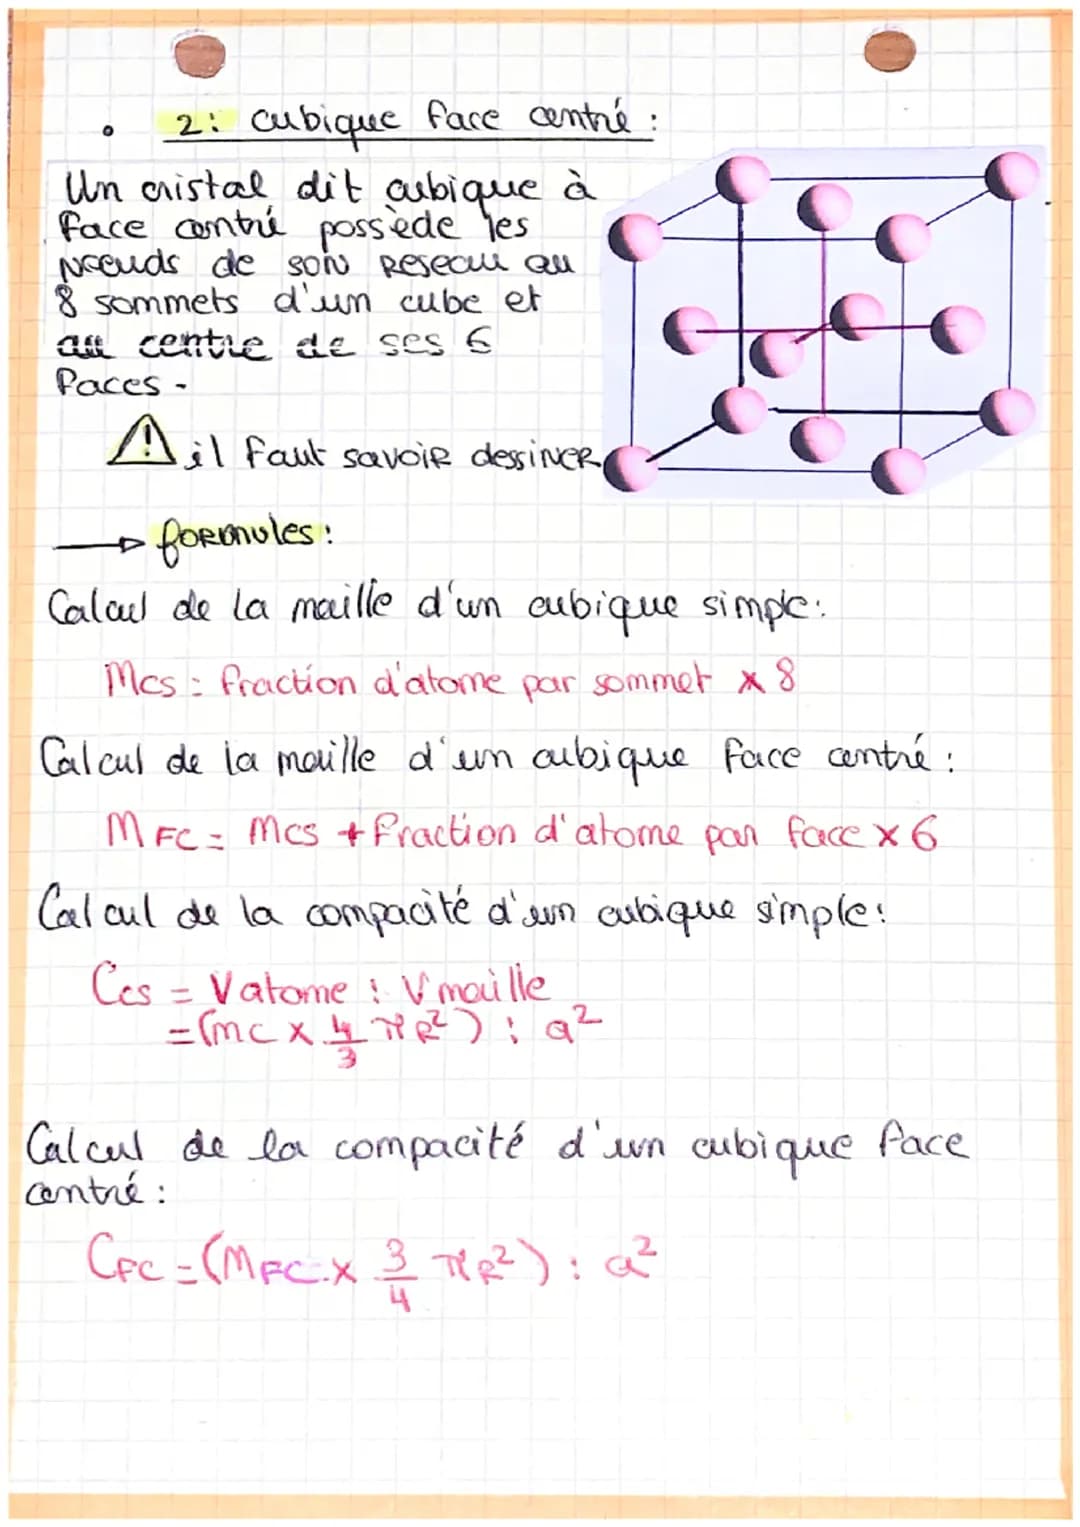 • 2: cubique face centré :
Un cristal dit cubique à
face centré possède les
nœuds de son reseau au
8 sommets d'un cube et
au centre de ses 6
faces -
⚠ il faut savoir dessiner
→ formules :
Calcul de la maille d'un cubique simple:
Mcs = fraction d'atome par sommet x 8
Calcul de la maille d'un cubique face centré :
M FC = Mcs + fraction d'atome par face x 6
Calcul de la compacité d'un cubique simple:
Ccs = V atome : V maille
= (mc x 4/3 π R²) : a²
Calcul de la compacité d'un cubique face
centré :
CFC = (MFC x 3/4 π R²) : a²